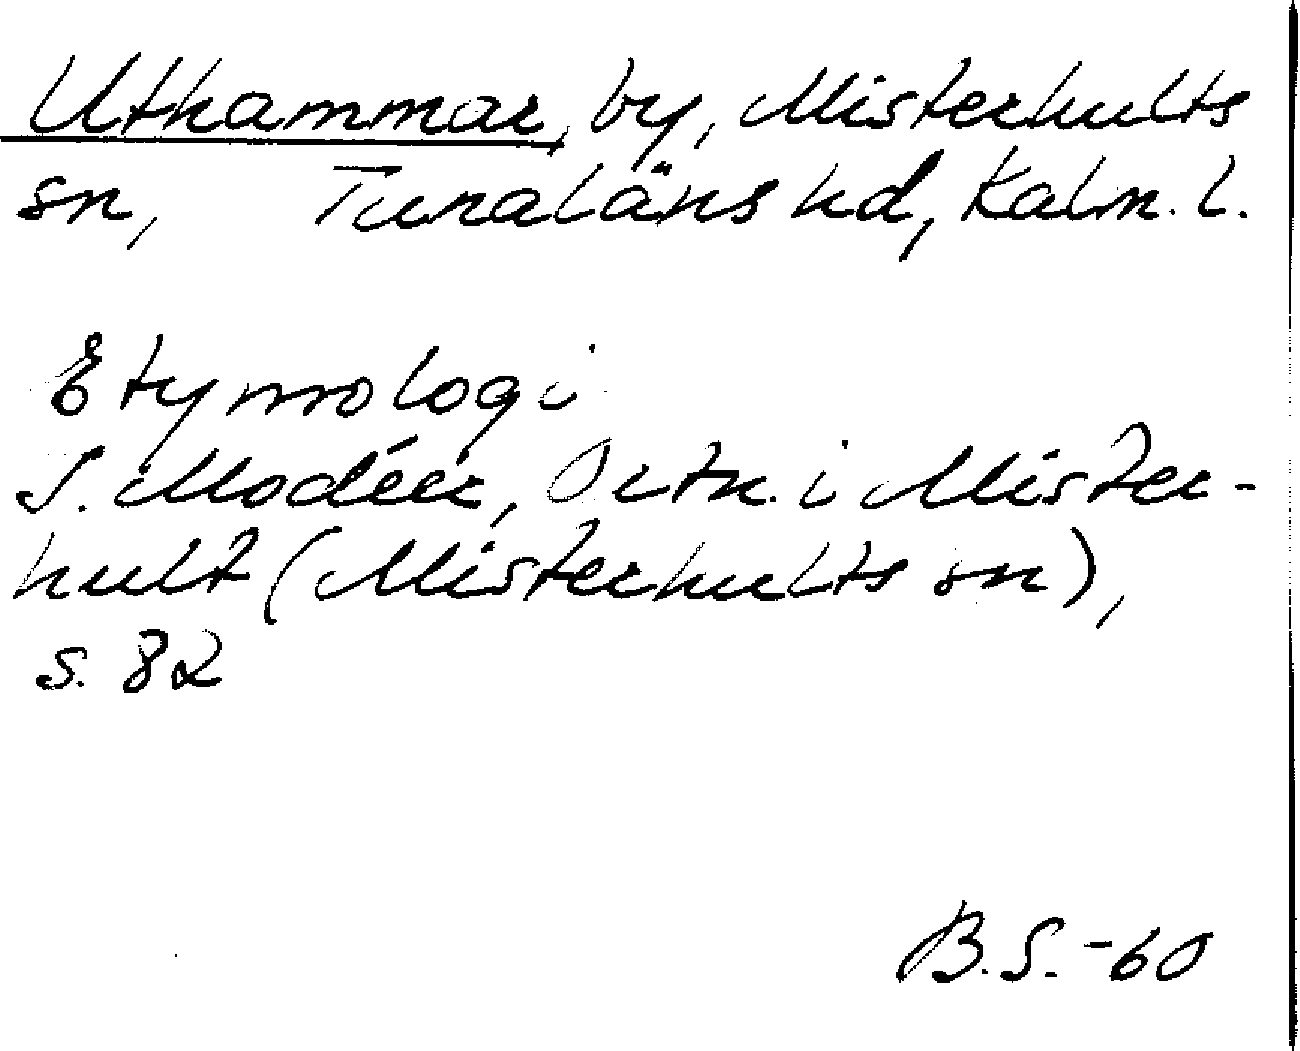 Uthammar, by, Misterhults
sn, Tunaläns hd, Kalm. l.
Etymologi
I. Modéer, Ortn. i Mister-
hult (Misterhults sn),
s. 82
B.S.-60